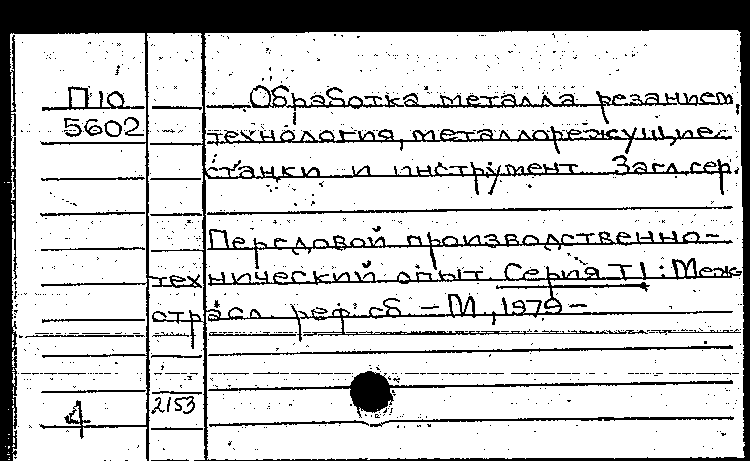 П10
5602
Обработка металла резанием,
технология, металлорежущие
станки и инструмент. Загл.сер.
Передовой производственно-
технический опыт. Серия Т1: Меж-
отрасл. реф. сб. – М., 1979 –
4
2153